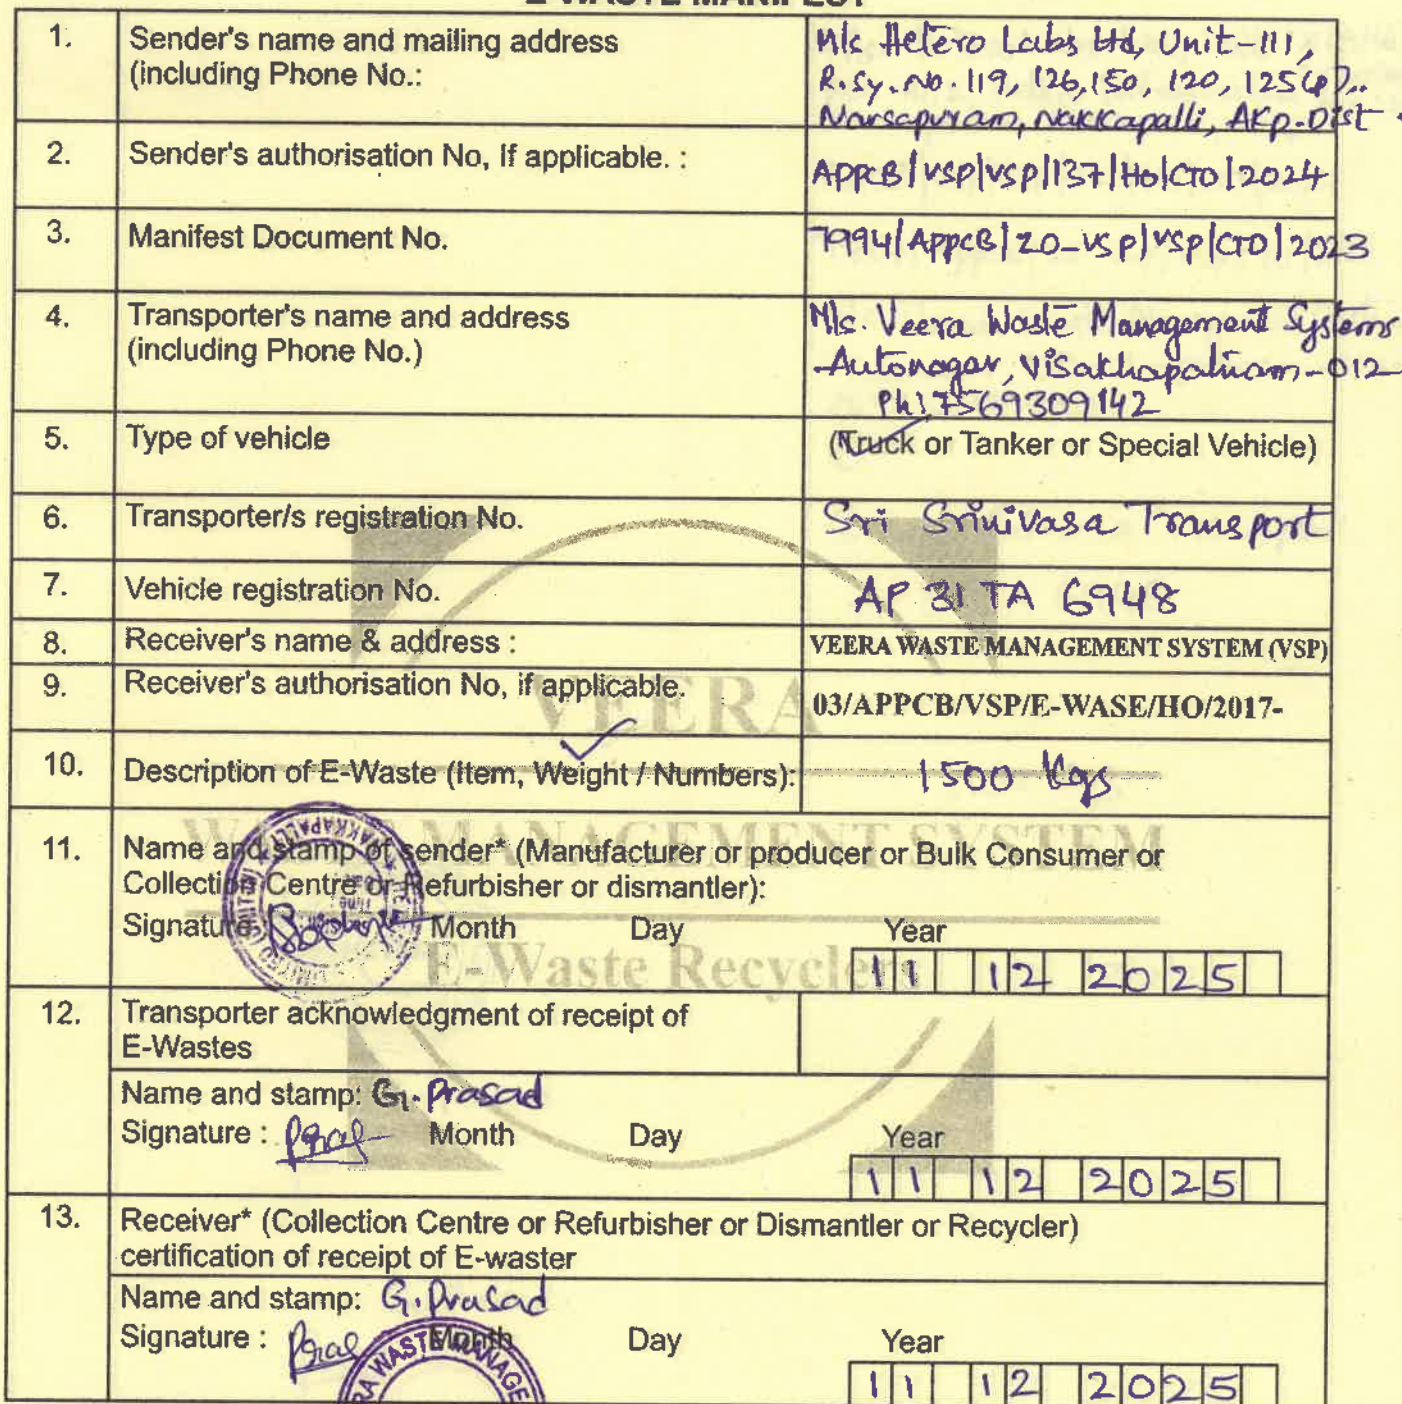 E-WASTE MANIFEST
1. Sender's name and mailing address
(including Phone No.:
M/s Hetero Labs Ltd, Unit-III,
R.sy.No.119, 126,150, 120, 125(P)..
Narsapuram, Nakkapalli, AKp.Dist.
2. Sender's authorisation No, If applicable. : APPCB/VSP/VSP/137/HO/CTO/2024
3. Manifest Document No. 7994/APPCB/ZO-VSP/VSP/CTO/2023
4. Transporter's name and address
(including Phone No.)
M/s. Veera Waste Management Systems
Autonagar, Visakhapatnam-012
Ph:7569309142
5. Type of vehicle (Truck or Tanker or Special Vehicle)
6. Transporter/s registration No. Sri Srinivasa Transport
7. Vehicle registration No. AP 31 TA 6948
8. Receiver's name & address : VEERA WASTE MANAGEMENT SYSTEM (VSP)
9. Receiver's authorisation No, if applicable. 03/APPCB/VSP/E-WASE/HO/2017-
VEERA
10. Description of E-Waste (Item, Weight / Numbers): 1500 Kgs
WASTE MANAGEMENT SYSTEM
11. Name and stamp of sender* (Manufacturer or producer or Bulk Consumer or
Collection Centre or Refurbisher or dismantler):
Signature Month Day Year
E-Waste Recyclers
11 12 2025
12. Transporter acknowledgment of receipt of
E-Wastes
Name and stamp: G. Prasad
Signature : Month Day Year
11 12 2025
13. Receiver* (Collection Centre or Refurbisher or Dismantler or Recycler)
certification of receipt of E-waster
Name and stamp: G. Prasad
Signature : Month Day Year
11 12 2025